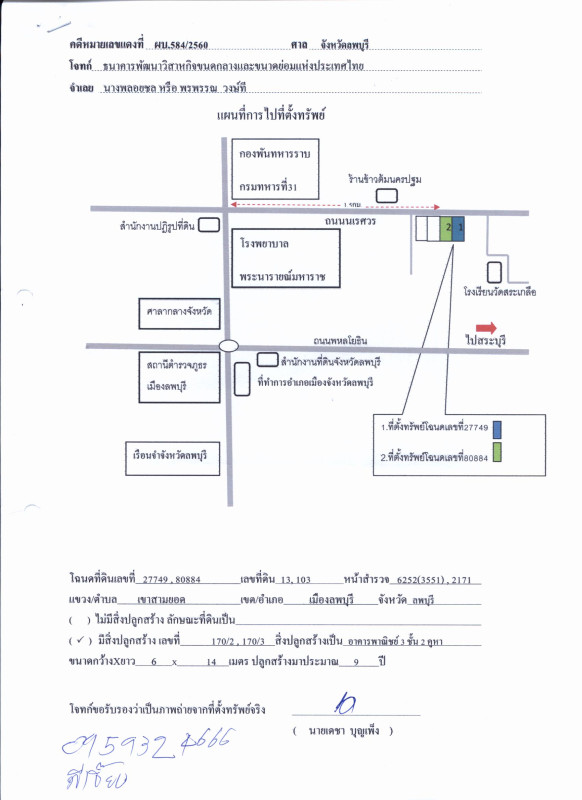 คดีหมายเลขแดงที่ ผบ.584/2560 ศาล จังหวัดลพบุรี
โจทก์ ธนาคารพัฒนาวิสาหกิจขนาดกลางและขนาดย่อมแห่งประเทศไทย
จำเลย นางพลอยชล หรือ พรพรรณ วงษ์ที
แผนที่การไปที่ตั้งทรัพย์
กองพันทหารราบ
กรมทหารที่31
ร้านข้าวต้มนครปฐม
ถนนนเรศวร
สำนักงานปฏิรูปที่ดิน
2 1
โรงพยาบาล
พระนารายณ์มหาราช
โรงเรียนวัดสระเกลือ
ศาลากลางจังหวัด
ถนนพหลโยธิน
ไปสระบุรี
สถานีตำรวจภูธร
เมืองลพบุรี
สำนักงานที่ดินจังหวัดลพบุรี
ที่ทำการอำเภอเมืองจังหวัดลพบุรี
1.ที่ตั้งทรัพย์โฉนดเลขที่27749
2.ที่ตั้งทรัพย์โฉนดเลขที่80884
เรือนจำจังหวัดลพบุรี
โฉนดที่ดินเลขที่ 27749 , 80884 เลขที่ดิน 13, 103 หน้าสำรวจ 6252(3551) , 2171
แขวง/ตำบล เขาสามยอด เขต/อำเภอ เมืองลพบุรี จังหวัด ลพบุรี
( ) ไม่มีสิ่งปลูกสร้าง ลักษณะที่ดินเป็น
( ✓ ) มีสิ่งปลูกสร้าง เลขที่ 170/2 , 170/3 สิ่งปลูกสร้างเป็น อาคารพาณิชย์ 3 ชั้น 2 คูหา
ขนาดกว้างXยาว 6 x 14 เมตร ปลูกสร้างมาประมาณ 9 ปี
โจทก์ขอรับรองว่าเป็นภาพถ่ายจากที่ตั้งทรัพย์จริง
( นายเดชา บุญเพ็ง )